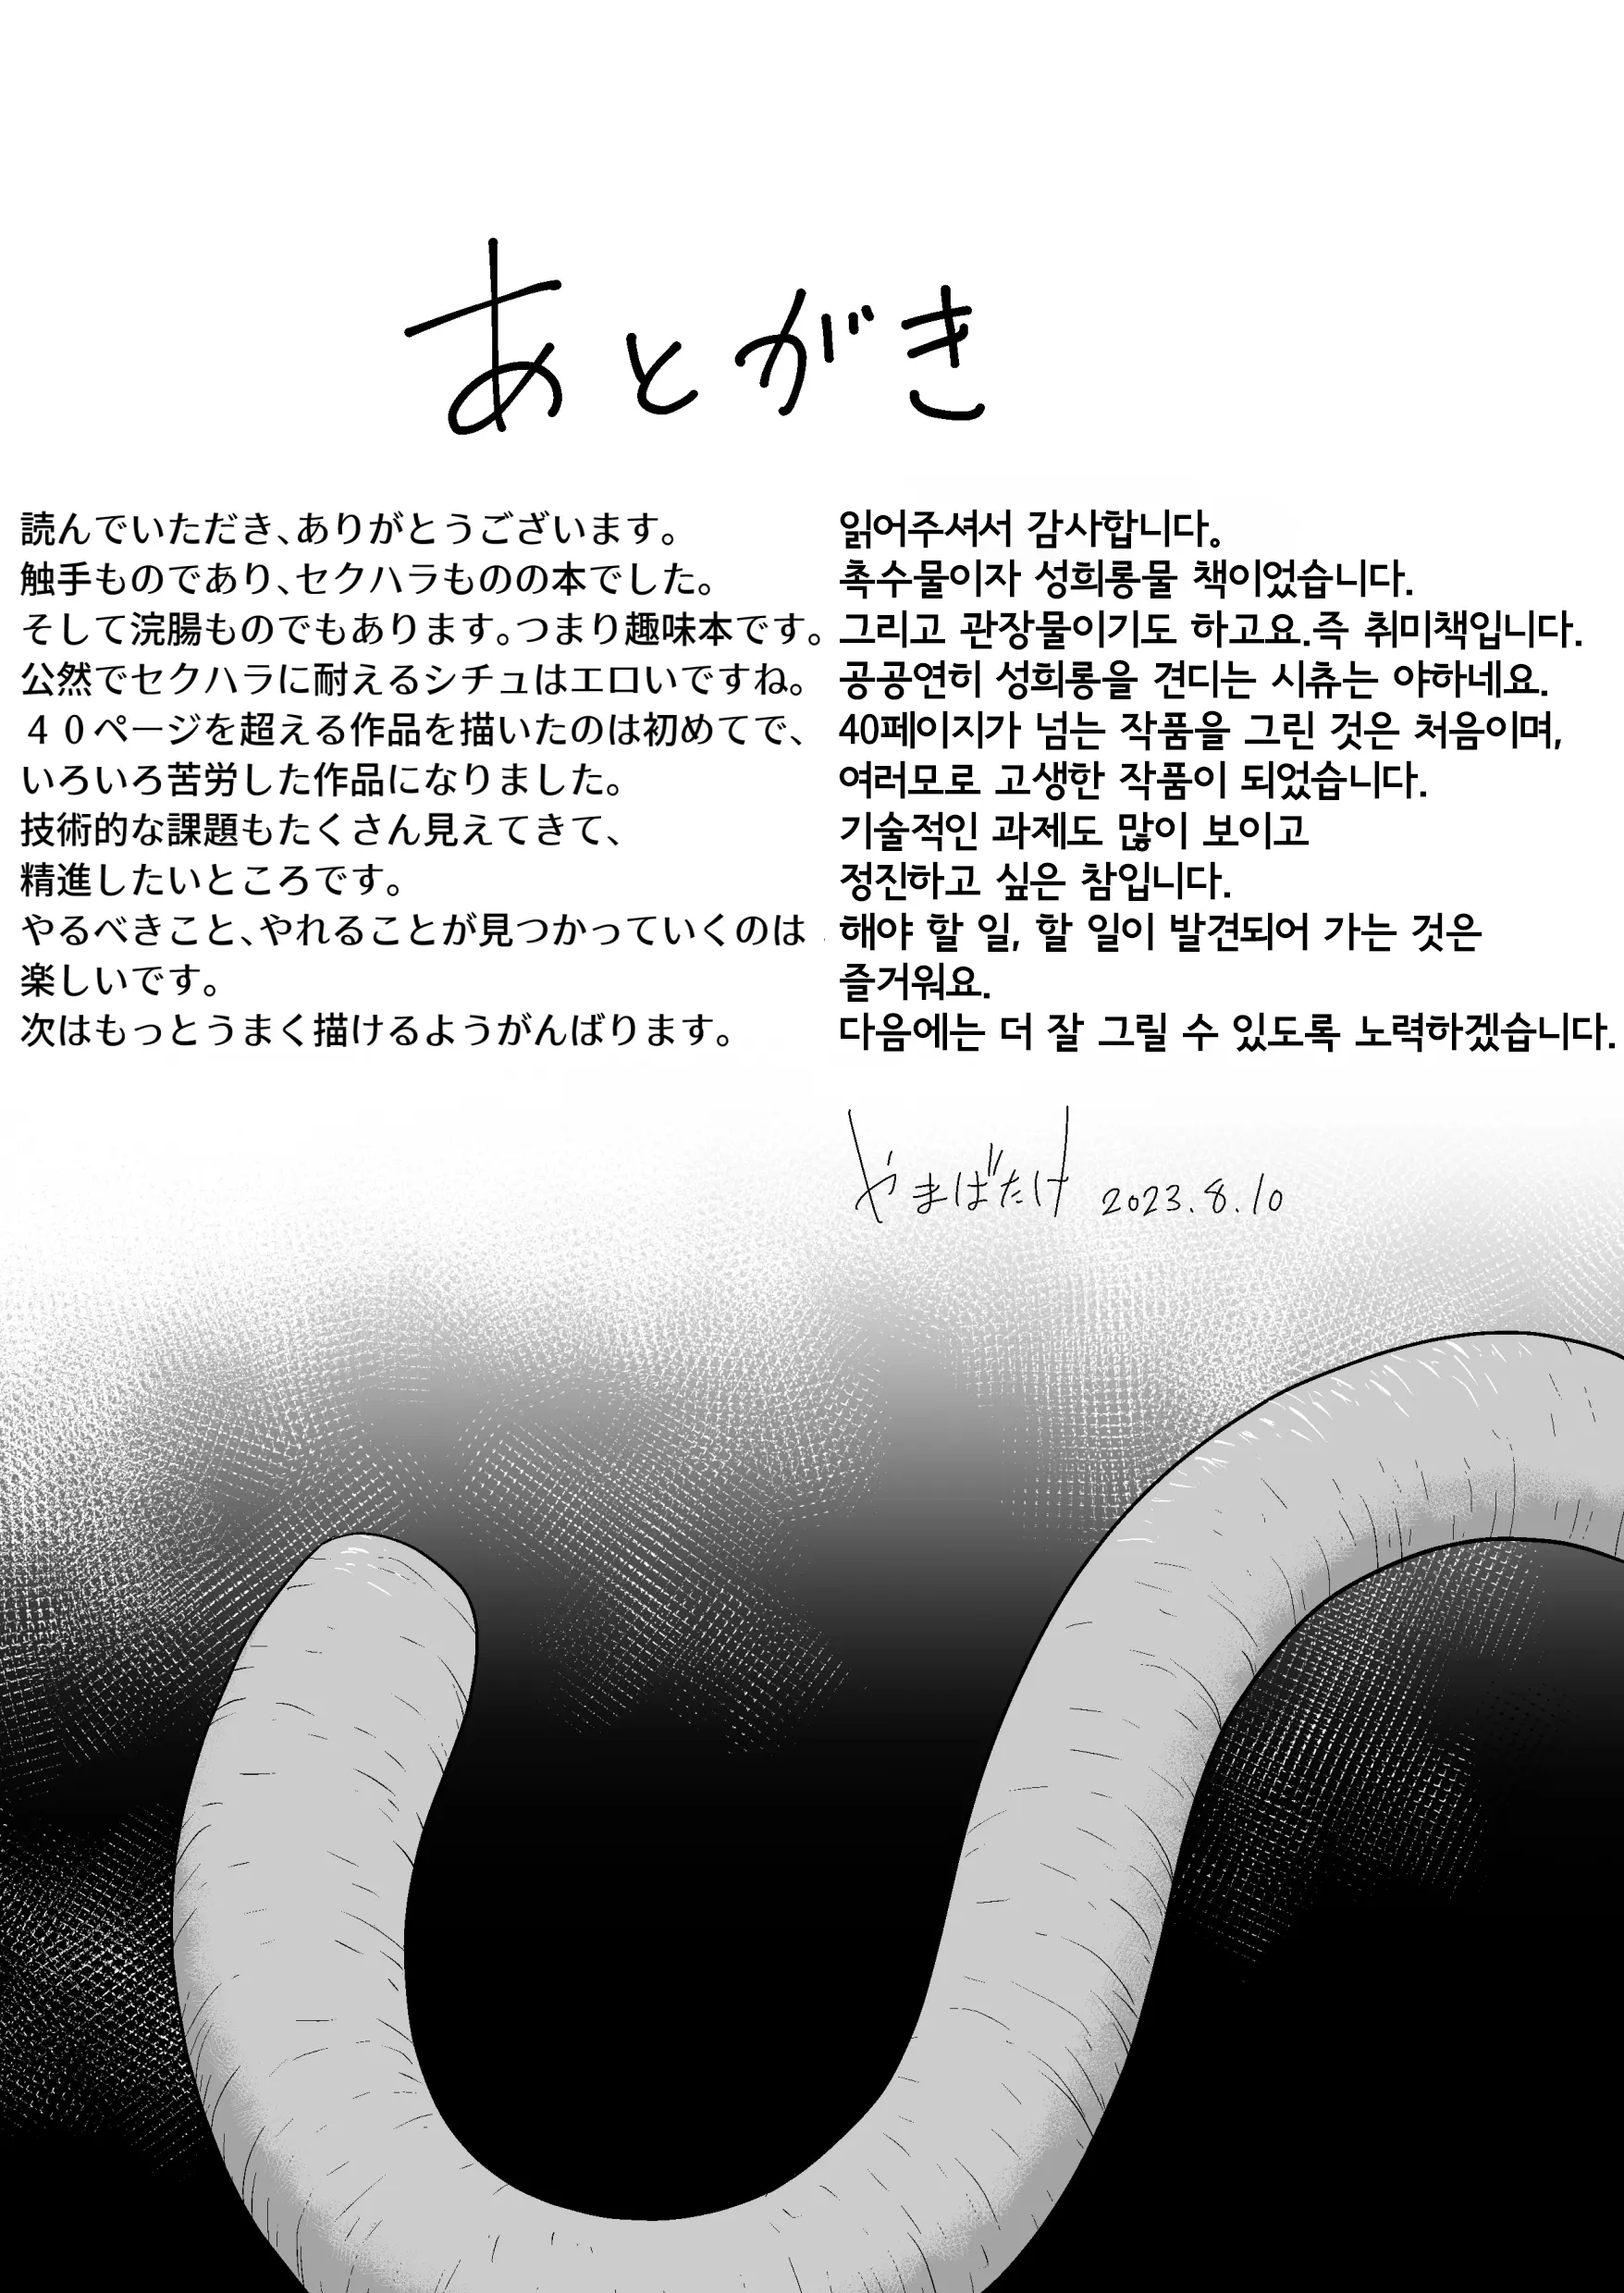 あとがき
読んでいただき、ありがとうございます。
触手ものであり、セクハラものの本でした。
そして浣腸ものでもあります。つまり趣味本です。
公然でセクハラに耐えるシチュはエロいですね。
４０ページを超える作品を描いたのは初めてで、
いろいろ苦労した作品になりました。
技術的な課題もたくさん見えてきて、
精進したいところです。
やるべきこと、やれることが見つかっていくのは
楽しいです。
次はもっとうまく描けるようがんばります。
읽어주셔서 감사합니다。
촉수물이자 성희롱물 책이었습니다.
그리고 관장물이기도 하고요.즉 취미책입니다.
공공연히 성희롱을 견디는 시츄는 야하네요.
40페이지가 넘는 작품을 그린 것은 처음이며,
여러모로 고생한 작품이 되었습니다.
기술적인 과제도 많이 보이고
정진하고 싶은 참입니다.
해야 할 일, 할 일이 발견되어 가는 것은
즐거워요.
다음에는 더 잘 그릴 수 있도록 노력하겠습니다.
やまばたけ 2023.8.10